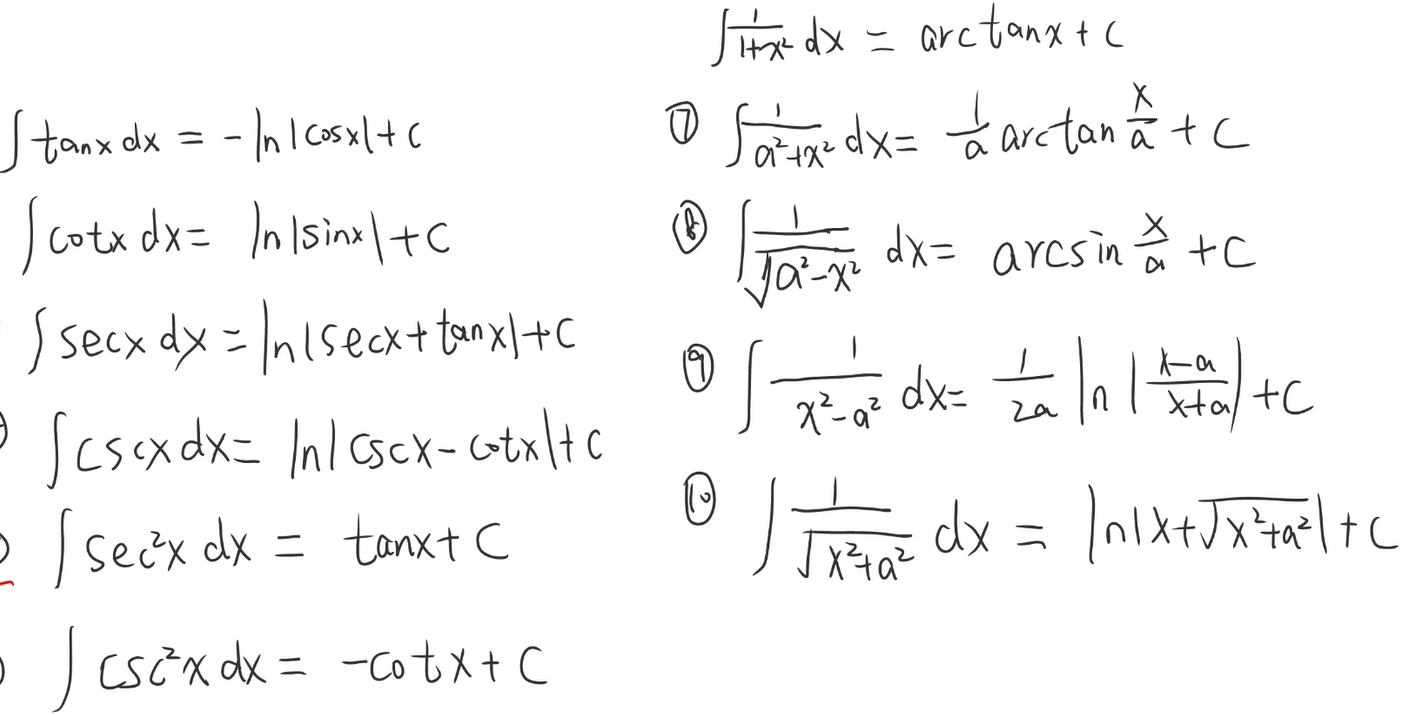 ∫ tanx dx = -ln|cosx|+c
∫ cotx dx = ln|sinx|+C
∫ secx dx = ln|secx+tanx|+C
∫ cscx dx = ln|cscx-cotx|+C
∫ sec²x dx = tanx+C
∫ csc²x dx = -cotx+C
∫ 1/(1+x²) dx = arctanx+C
⑦ ∫ 1/(a²+x²) dx = 1/a arctan x/a + C
⑧ ∫ 1/√(a²-x²) dx = arcsin x/a + C
⑨ ∫ 1/(x²-a²) dx = 1/2a ln|(x-a)/(x+a)|+C
⑩ ∫ 1/√(x²+a²) dx = ln|x+√(x²+a²)|+C